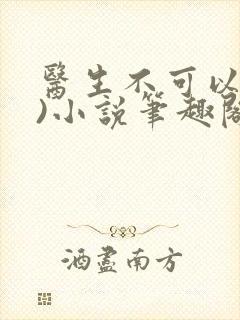 醫生不可以
)小說筆趣閣
酒盡南方